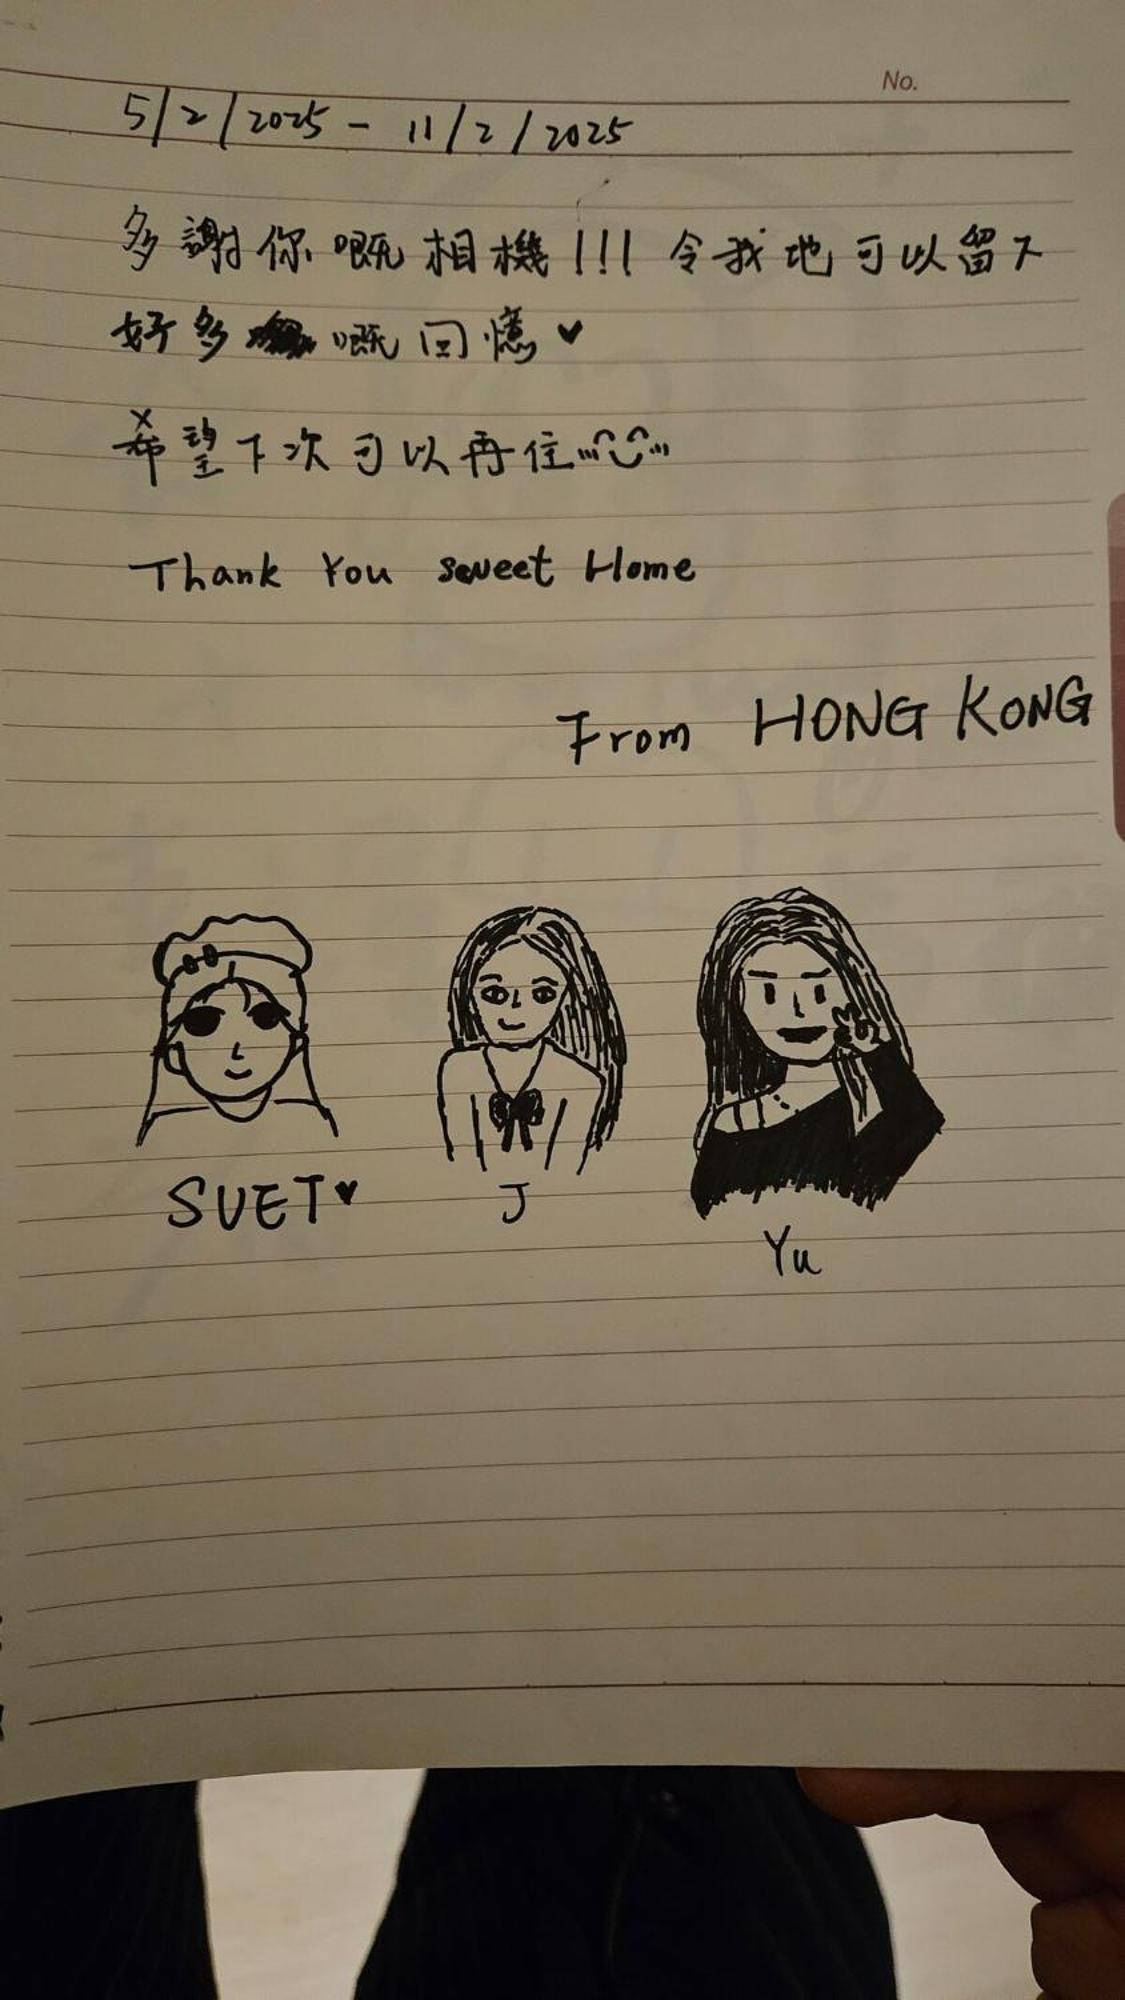 No.
5/2/2025 - 11/2/2025
多謝你嘅相機!!! 令我哋可以留下
好多嘅回憶♥
希望下次可以再住
Thank You sweet Home
From HONG KONG
SUET♥ J
Yu